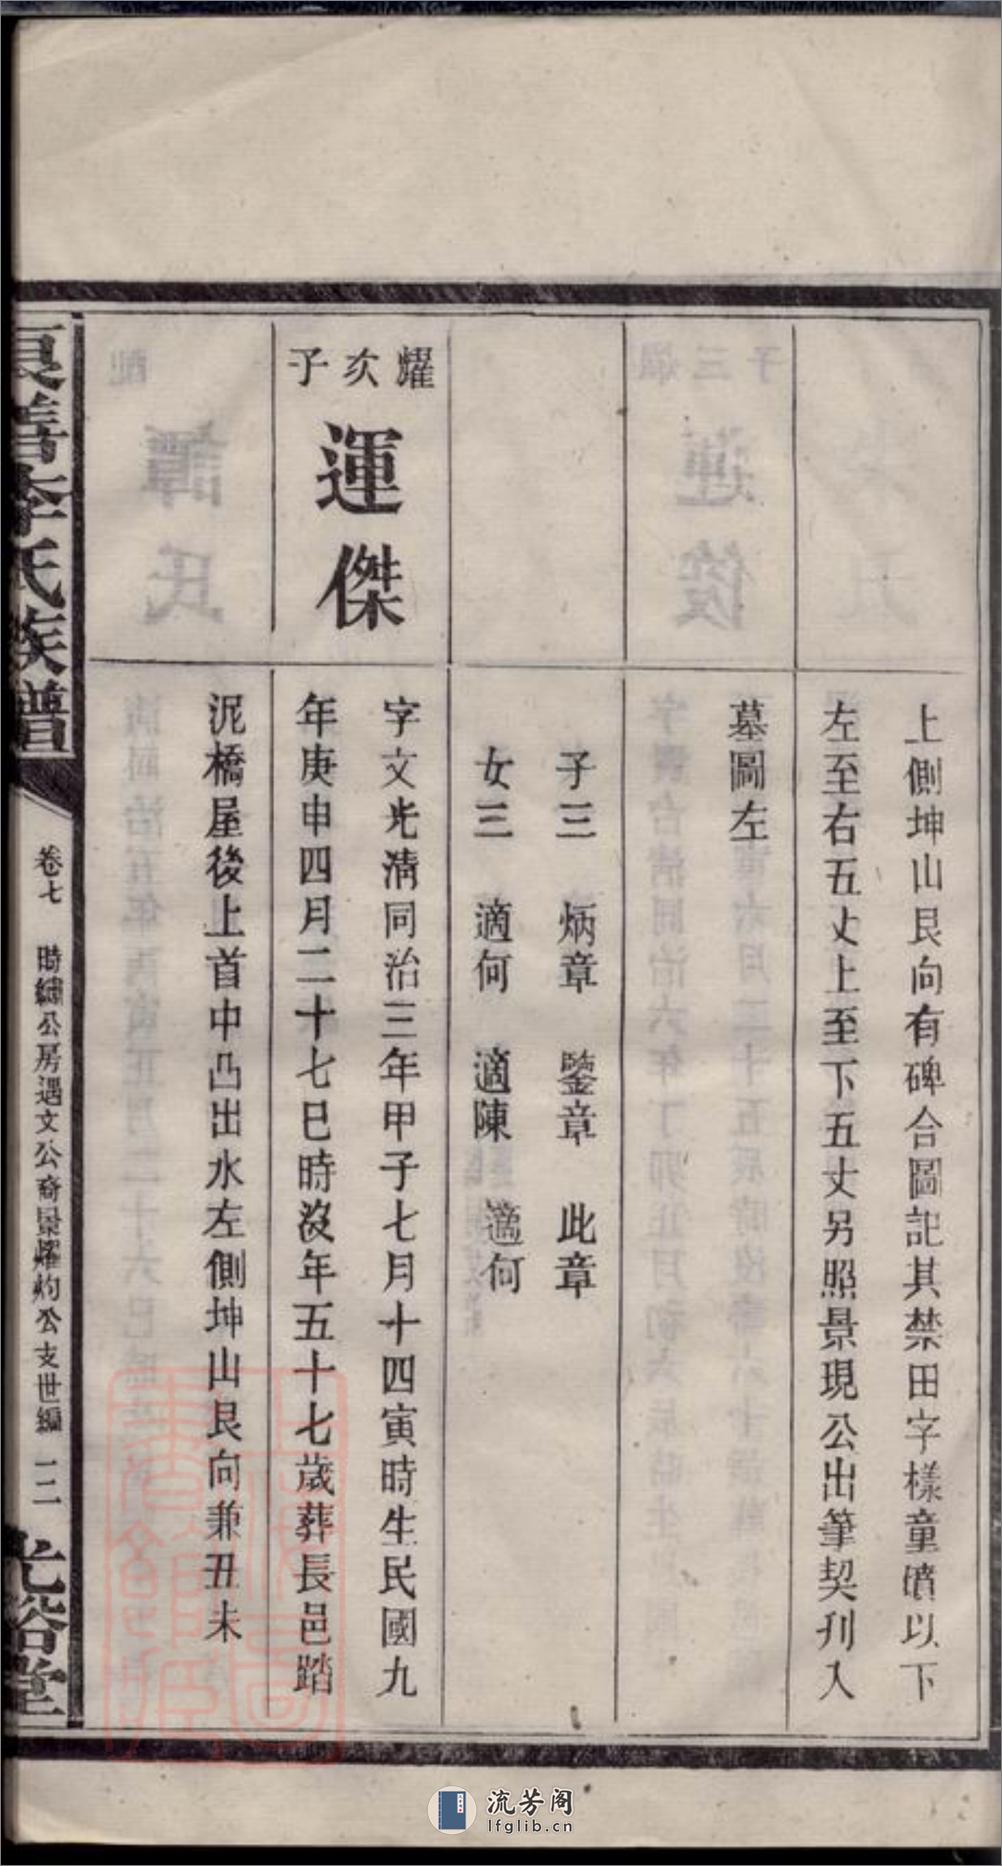 上側坤山艮向有碑合圖記其禁田字樣童墳以下
左至右五丈上至下五丈另照景現公出筆契刋入
墓圖左
子三 炳章 鑒章 此章
女三 適何 適陳 適何
燿次子
運傑
字文光清同治三年甲子七月十四寅時生民國九
年庚申四月二十七巳時沒年五十七歲葬長邑踏
泥橋屋後上首中凸出水左側坤山艮向兼丑未
李氏族譜
卷七 時繡公房遇文公裔景燿灼公支世編 二
裕堂
流芳阁
lfglib.cn